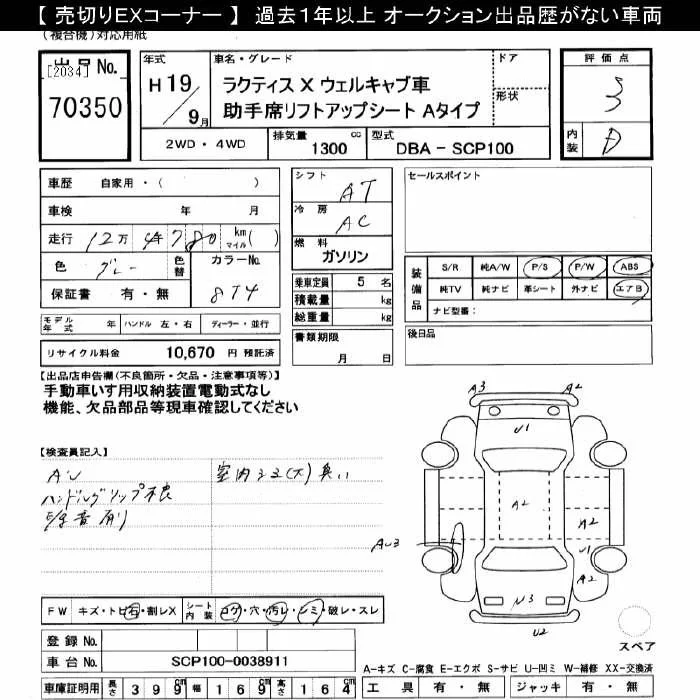 【 売切りEXコーナー 】 過去１年以上 オークション出品歴がない車両
(複合機)対応用紙
出品No.
[2034]
70350
年式
H 19 / 9月
車名・グレード
ラクティス X ウェルキャブ車
助手席リフトアップシート Aタイプ
ドア
形状
2WD・4WD
排気量 1300 cc
型式 DBA - SCP100
評価点
3
内装 D
車歴 自家用・( )
車検 年 月
走行 12万 4780 km マイル ( )
色 グレー 色替 カラーNo. 8T4
保証書 有・無
モデル年式 年 ハンドル 左・右 ディーラー・並行
リサイクル料金 10,670 円 預託済
シフト AT
冷房 AC
燃料 ガソリン
乗車定員 5 名
積載量 kg
総重量 kg
書類期限
月 日
セールスポイント
装備品
S/R 純A/W P/S P/W ABS
純TV 純ナビ 革シート 外ナビ エアB
ナビ型番：
後日品
【出品店申告欄(不良箇所・欠品・注意事項等)】
手動車いす用収納装置電動式なし
機能、欠品部品等現車確認してください
【検査員記入】
AU
ハンドル、グリップ不良
室内シミ(大) 臭い
A3
A2
U1
A2
A2
U1
AU3
A2
U3
U2
スペア
FW キズ・トビ石・割レX シート内装 コゲ・穴・汚レ・シミ・破レ・スレ
登録 No.
車台 No. SCP100-0038911
車庫証明用 長さ 399 cm 幅 169 cm 高さ 164 cm
A-キズ C-腐食 E-エクボ S-サビ U-凹ミ W-補修 XX-交換済
工具 有・無 ジャッキ 有・無